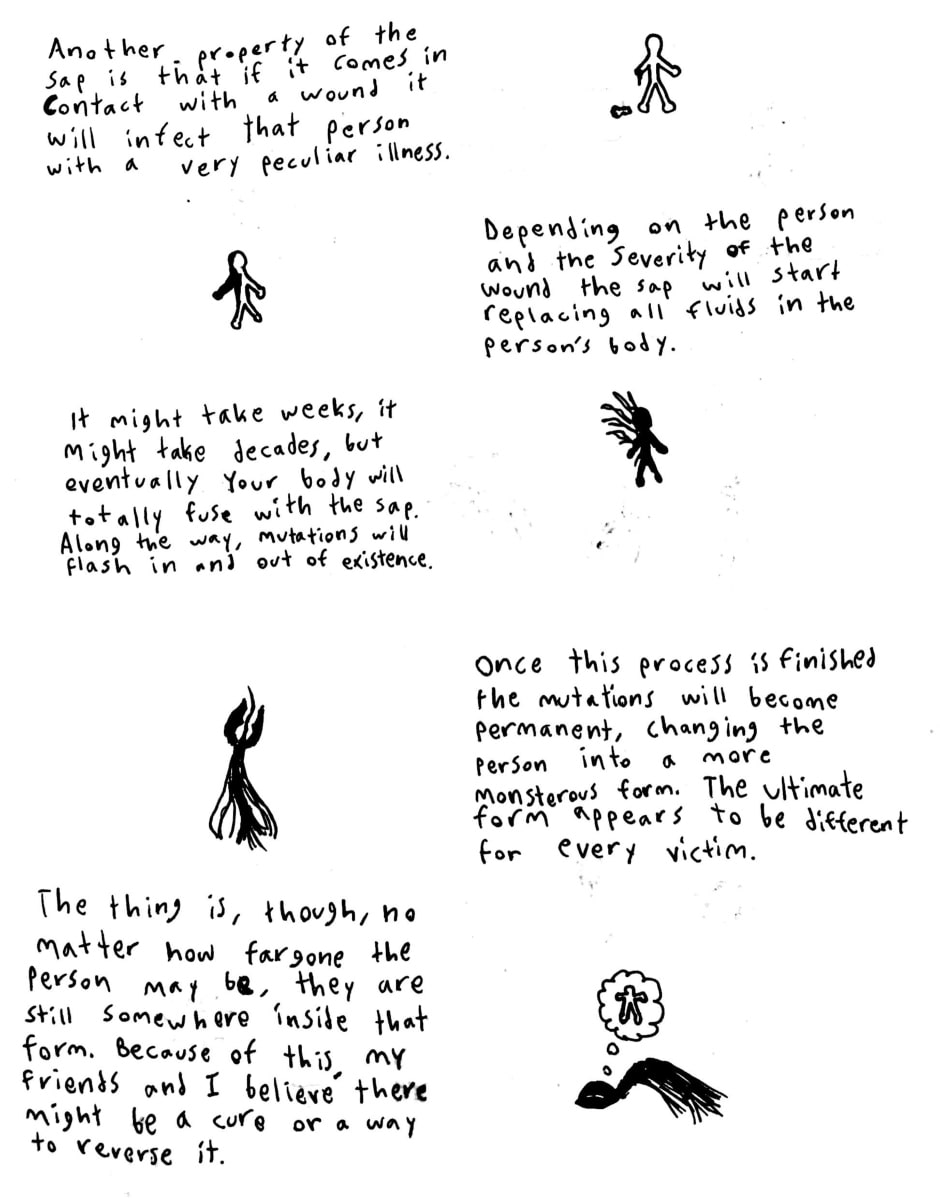 Another property of the
sap is that if it comes in
Contact with a wound it
will infect that person
with a very peculiar illness.
Depending on the person
and the severity of the
wound the sap will start
replacing all fluids in the
person's body.
It might take weeks, it
might take decades, but
eventually your body will
totally fuse with the sap.
Along the way, mutations will
flash in and out of existence.
Once this process is finished
the mutations will become
permanent, changing the
person into a more
monsterous form. The ultimate
form appears to be different
for every victim.
The thing is, though, no
matter how fargone the
person may be, they are
still somewhere inside that
form. Because of this, my
friends and I believe there
might be a cure or a way
to reverse it.